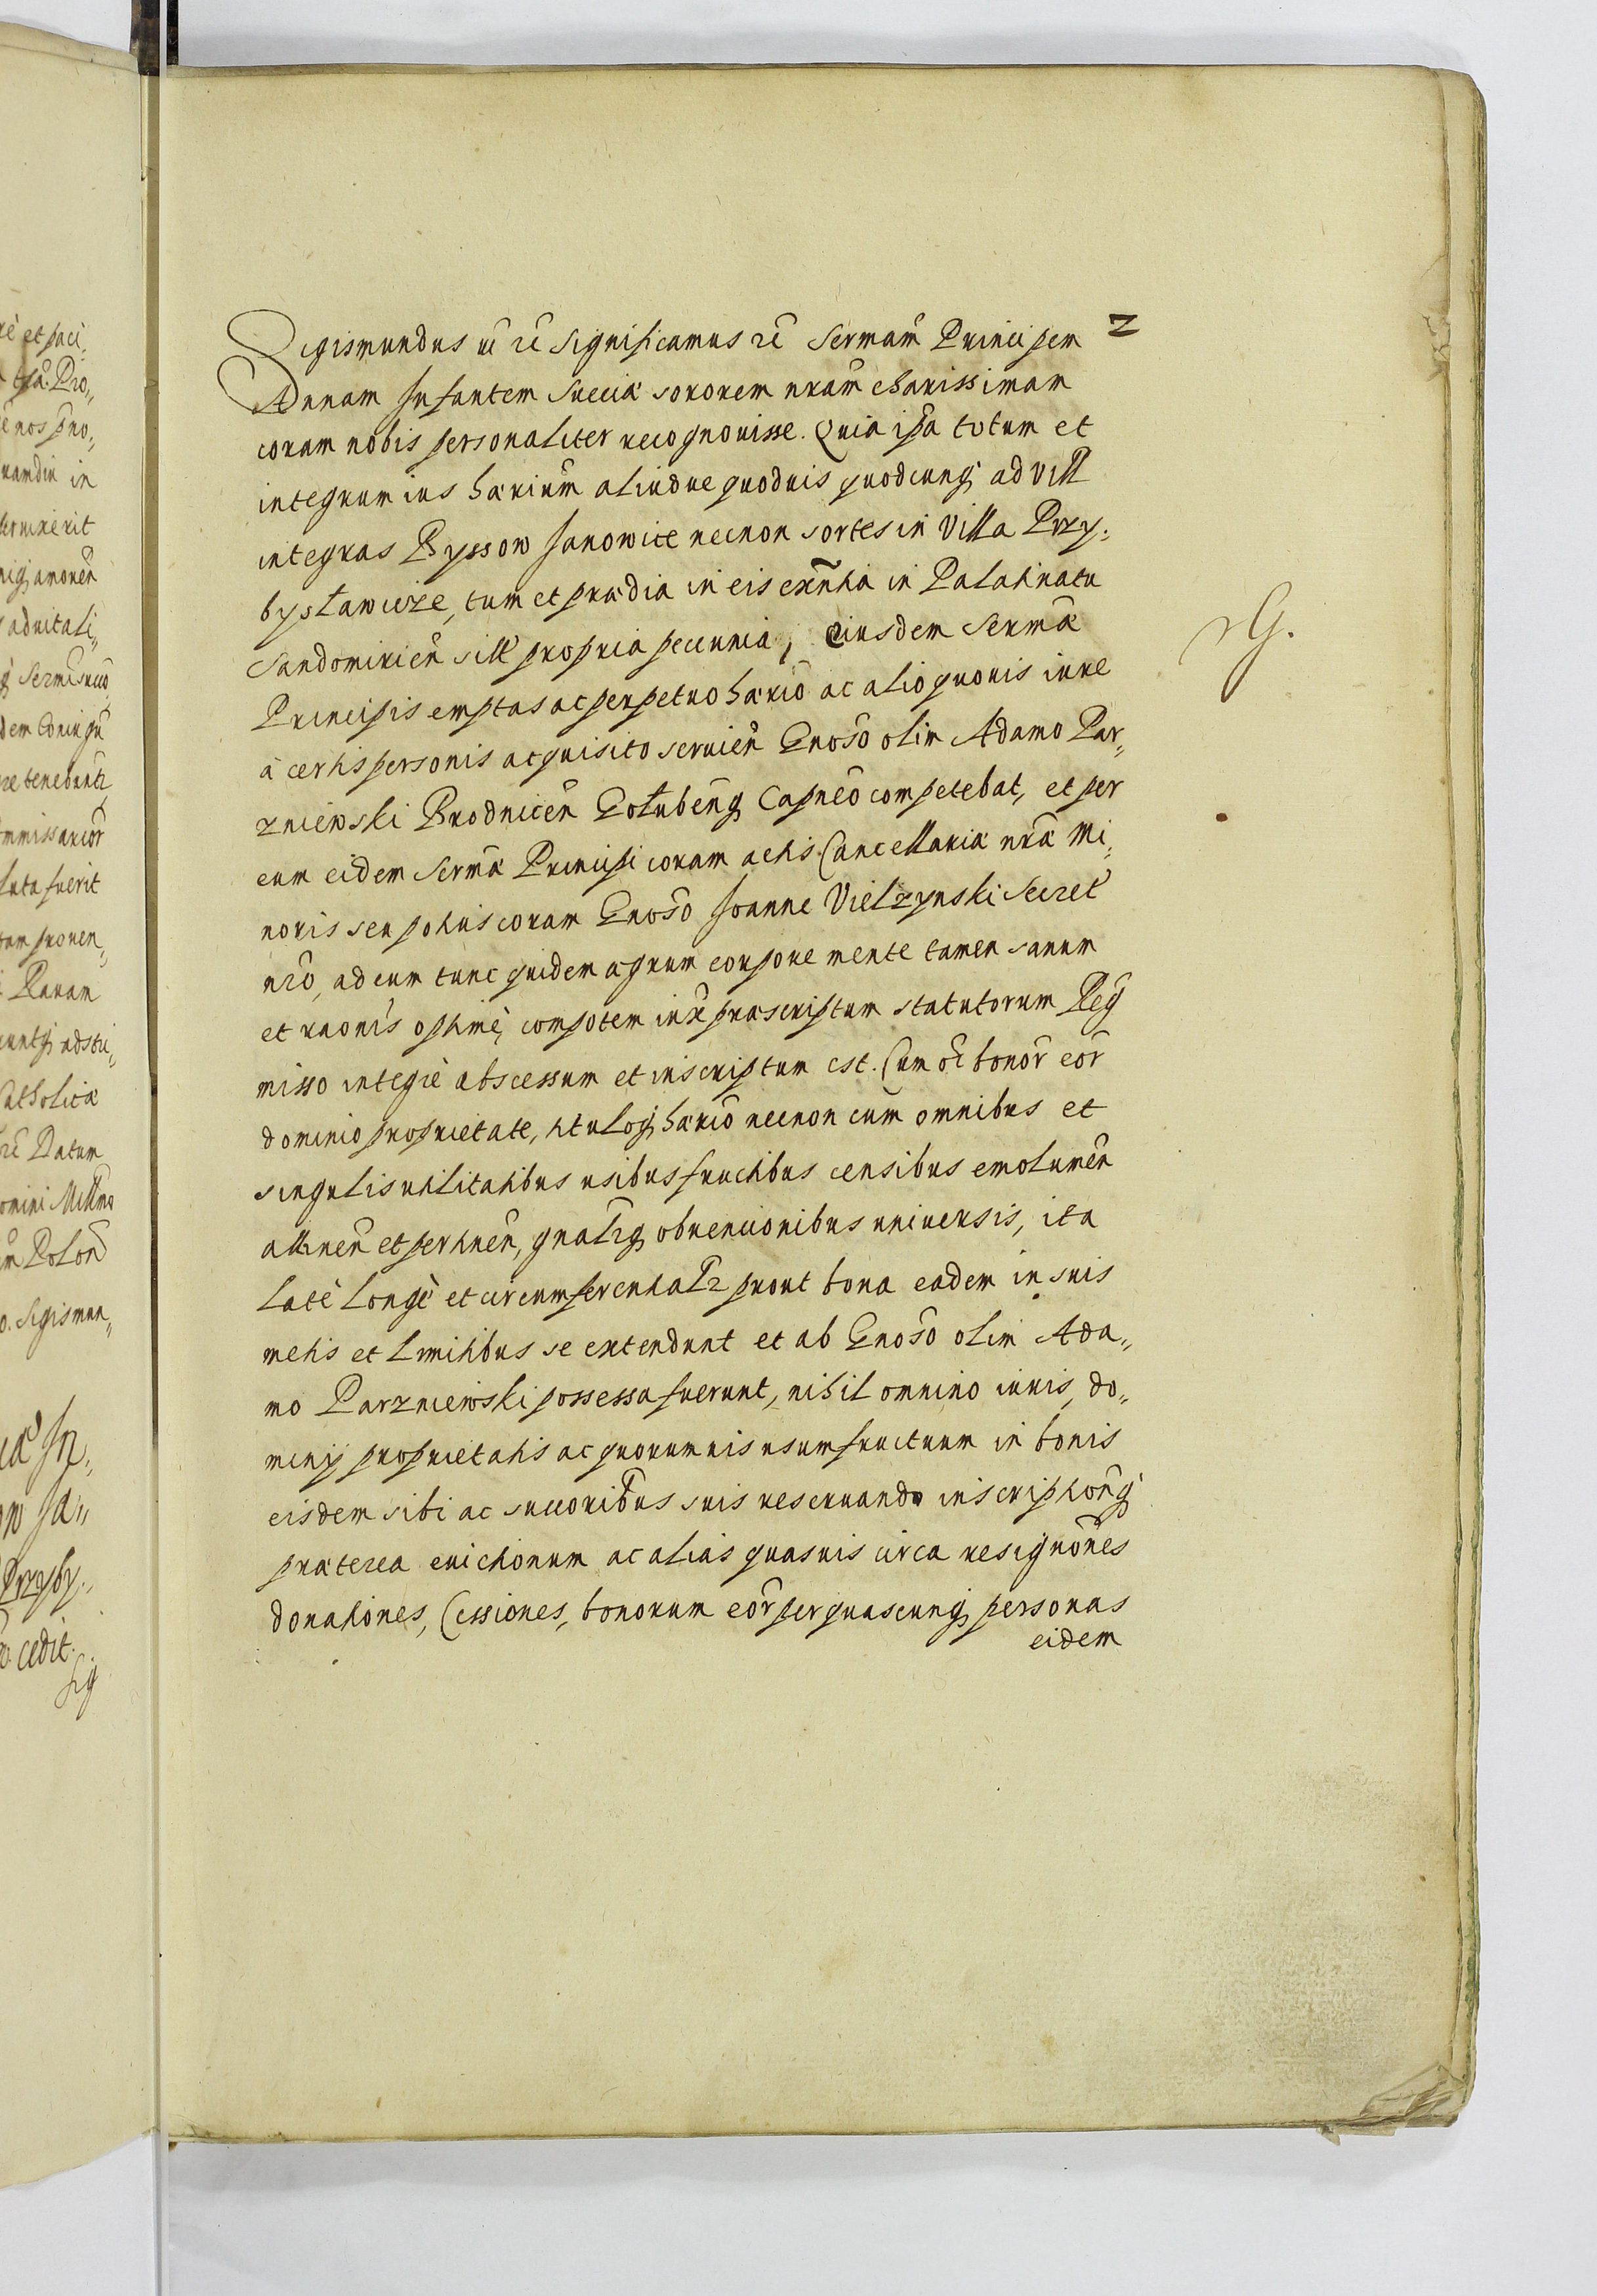 Sigismundus etc̄ rē significamus rē Sermam̄ Principem 2
Annam Infantem Sueciæ sororem nram̄ charissimam
coram nobis personaliter recognouisse. Quia ipsa totum et
integrum ius hærium̄ aliudue quoduis quodcunq̨ ad Vill
integras Ryssow Janowice necnon sortes in Villa Przy,
bysławicze, tum et prædia in eis exn̄tia in Palatinatu
Sandomirien̄ sitt̄ propria pecunia, eiusdem Sermǣ
Principis emptas ac perpetuo hærio̅ ac alio quouis iure
à certis personis acquisito seruien̄ Gnoso̅ olim Adamo Par,,
zniewski Brodnicen̄ Gołuben̄q̨ Capneo̅ competebat, et per
eum eidem Sermǣ Principi coram actis Cancellariæ nrǣ Mi,
noris seu potius coram Gnoso̅ Joanne Vielzynski Secret̄
nr̄o, ad eum tunc quidem ægrum corpore mente tamen sanum
et rao̅nis optimè, compotem iux̄ præscriptum statutorum Reḡ
misso integrè abscessum et inscriptum est. Cum oı̄ bonor̄ eor̄
dominio proprietate, tituloq̨ hærio̅ necnon cum omnibus et
singulis utilitatibus usibus fructibus censibus emolumen̄
attinen̄ et pertinen̄, gnal̄rq̨ obuencionibus uniuersis, ita
latè longè et circumferential̄r prout bona eadem in suis
metis et limitibus se extendunt et ab Gnoso̅ olim Ada,,
mo Parzniewski possessa fuerunt, nihil omnino iuris, do,,
minij proprietatis ac quorumuis usumfructuum in bonis
eisdem sibi ac succoribus̄ suis reseruando inscription̄q̨
præterea euictionum ac alias quasuis circa resigno̅nes
donationes, Cessiones, bonorum eor̄ per quascunq̨ personas
eidem
rG.